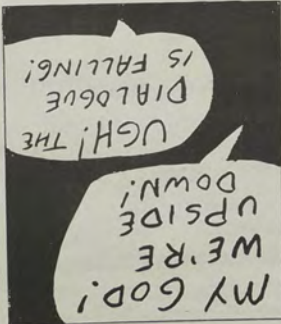 MY GOD!
WE'RE
UPSIDE
DOWN!
UGH! THE
DIALOGUE
IS FALLING!